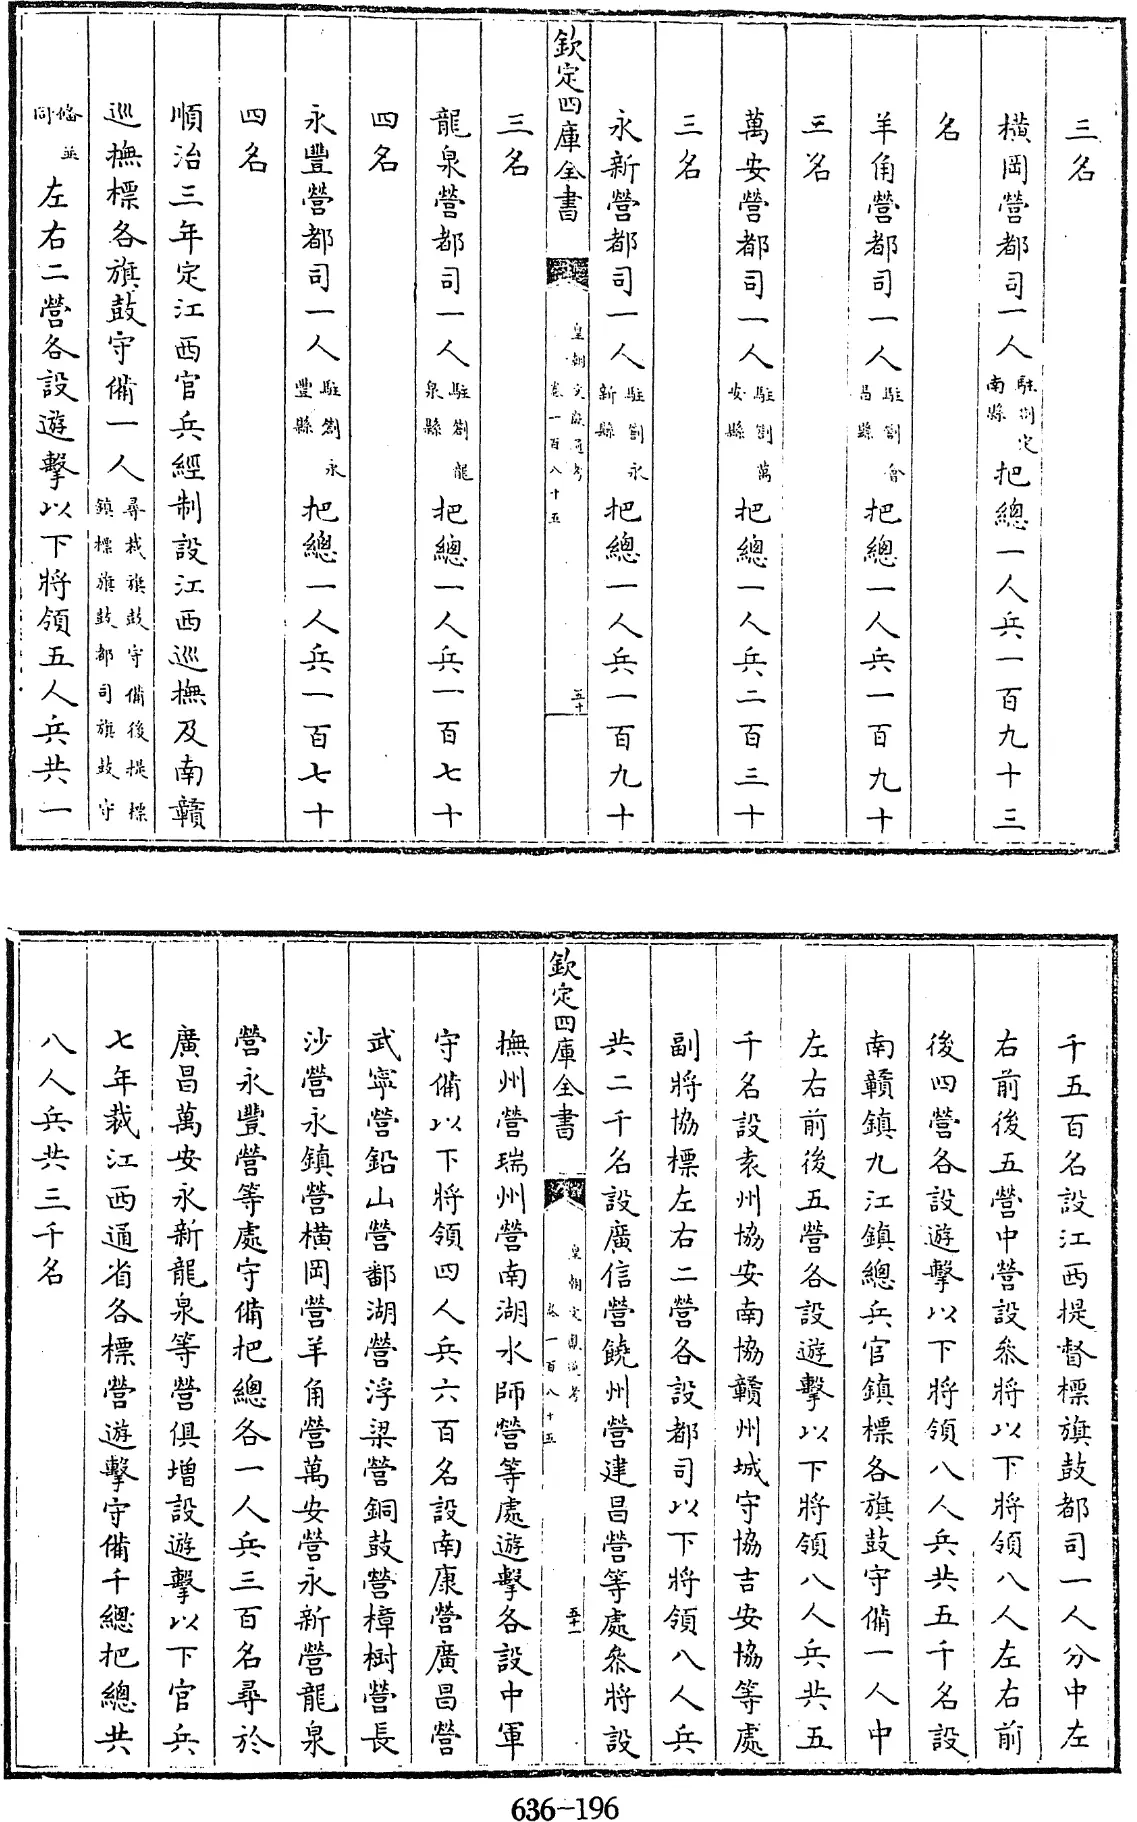 三名
橫岡營都司一人駐劄定南縣把總一人兵一百九十三
名
羊角營都司一人駐劄會昌縣把總一人兵一百九十
三名
萬安營都司一人駐劄萬安縣把總一人兵二百三十
三名
永新營都司一人駐劄永新縣把總一人兵一百九十
欽定四庫全書 皇朝文獻通考 卷一百八十五 五十
三名
龍泉營都司一人駐劄龍泉縣把總一人兵一百七十
四名
永豐營都司一人駐劄永豐縣把總一人兵一百七十
四名
順治三年定江西官兵經制設江西巡撫及南贛
巡撫標各旗鼓守備一人尋裁旗鼓守備後提標鎮標旗鼓都司旗鼓守
俻並同左右二營各設遊擊以下將領五人兵共一
千五百名設江西提督標旗鼓都司一人分中左
右前後五營中營設叅將以下將領八人左右前
後四營各設遊擊以下將領八人兵共五千名設
南贛鎮九江鎮總兵官鎮標各旗鼓守備一人中
左右前後五營各設遊擊以下將領八人兵共五
千名設袁州協安南協贛州城守協吉安協等處
副將協標左右二營各設都司以下將領八人兵
共二千名設廣信營饒州營建昌營等處叅將設
欽定四庫全書 皇朝文獻通考 卷一百八十五 五十一
撫州營瑞州營南湖水師營等處遊擊各設中軍
守備以下將領四人兵六百名設南康營廣昌營
武寧營鉛山營鄱湖營浮梁營銅鼓營樟樹營長
沙營永鎮營橫岡營羊角營萬安營永新營龍泉
營永豐營等處守備把總各一人兵三百名尋於
廣昌萬安永新龍泉等營俱增設遊擊以下官兵
七年裁江西通省各標營遊擊守備千總把總共
八人兵共三千名
636-196